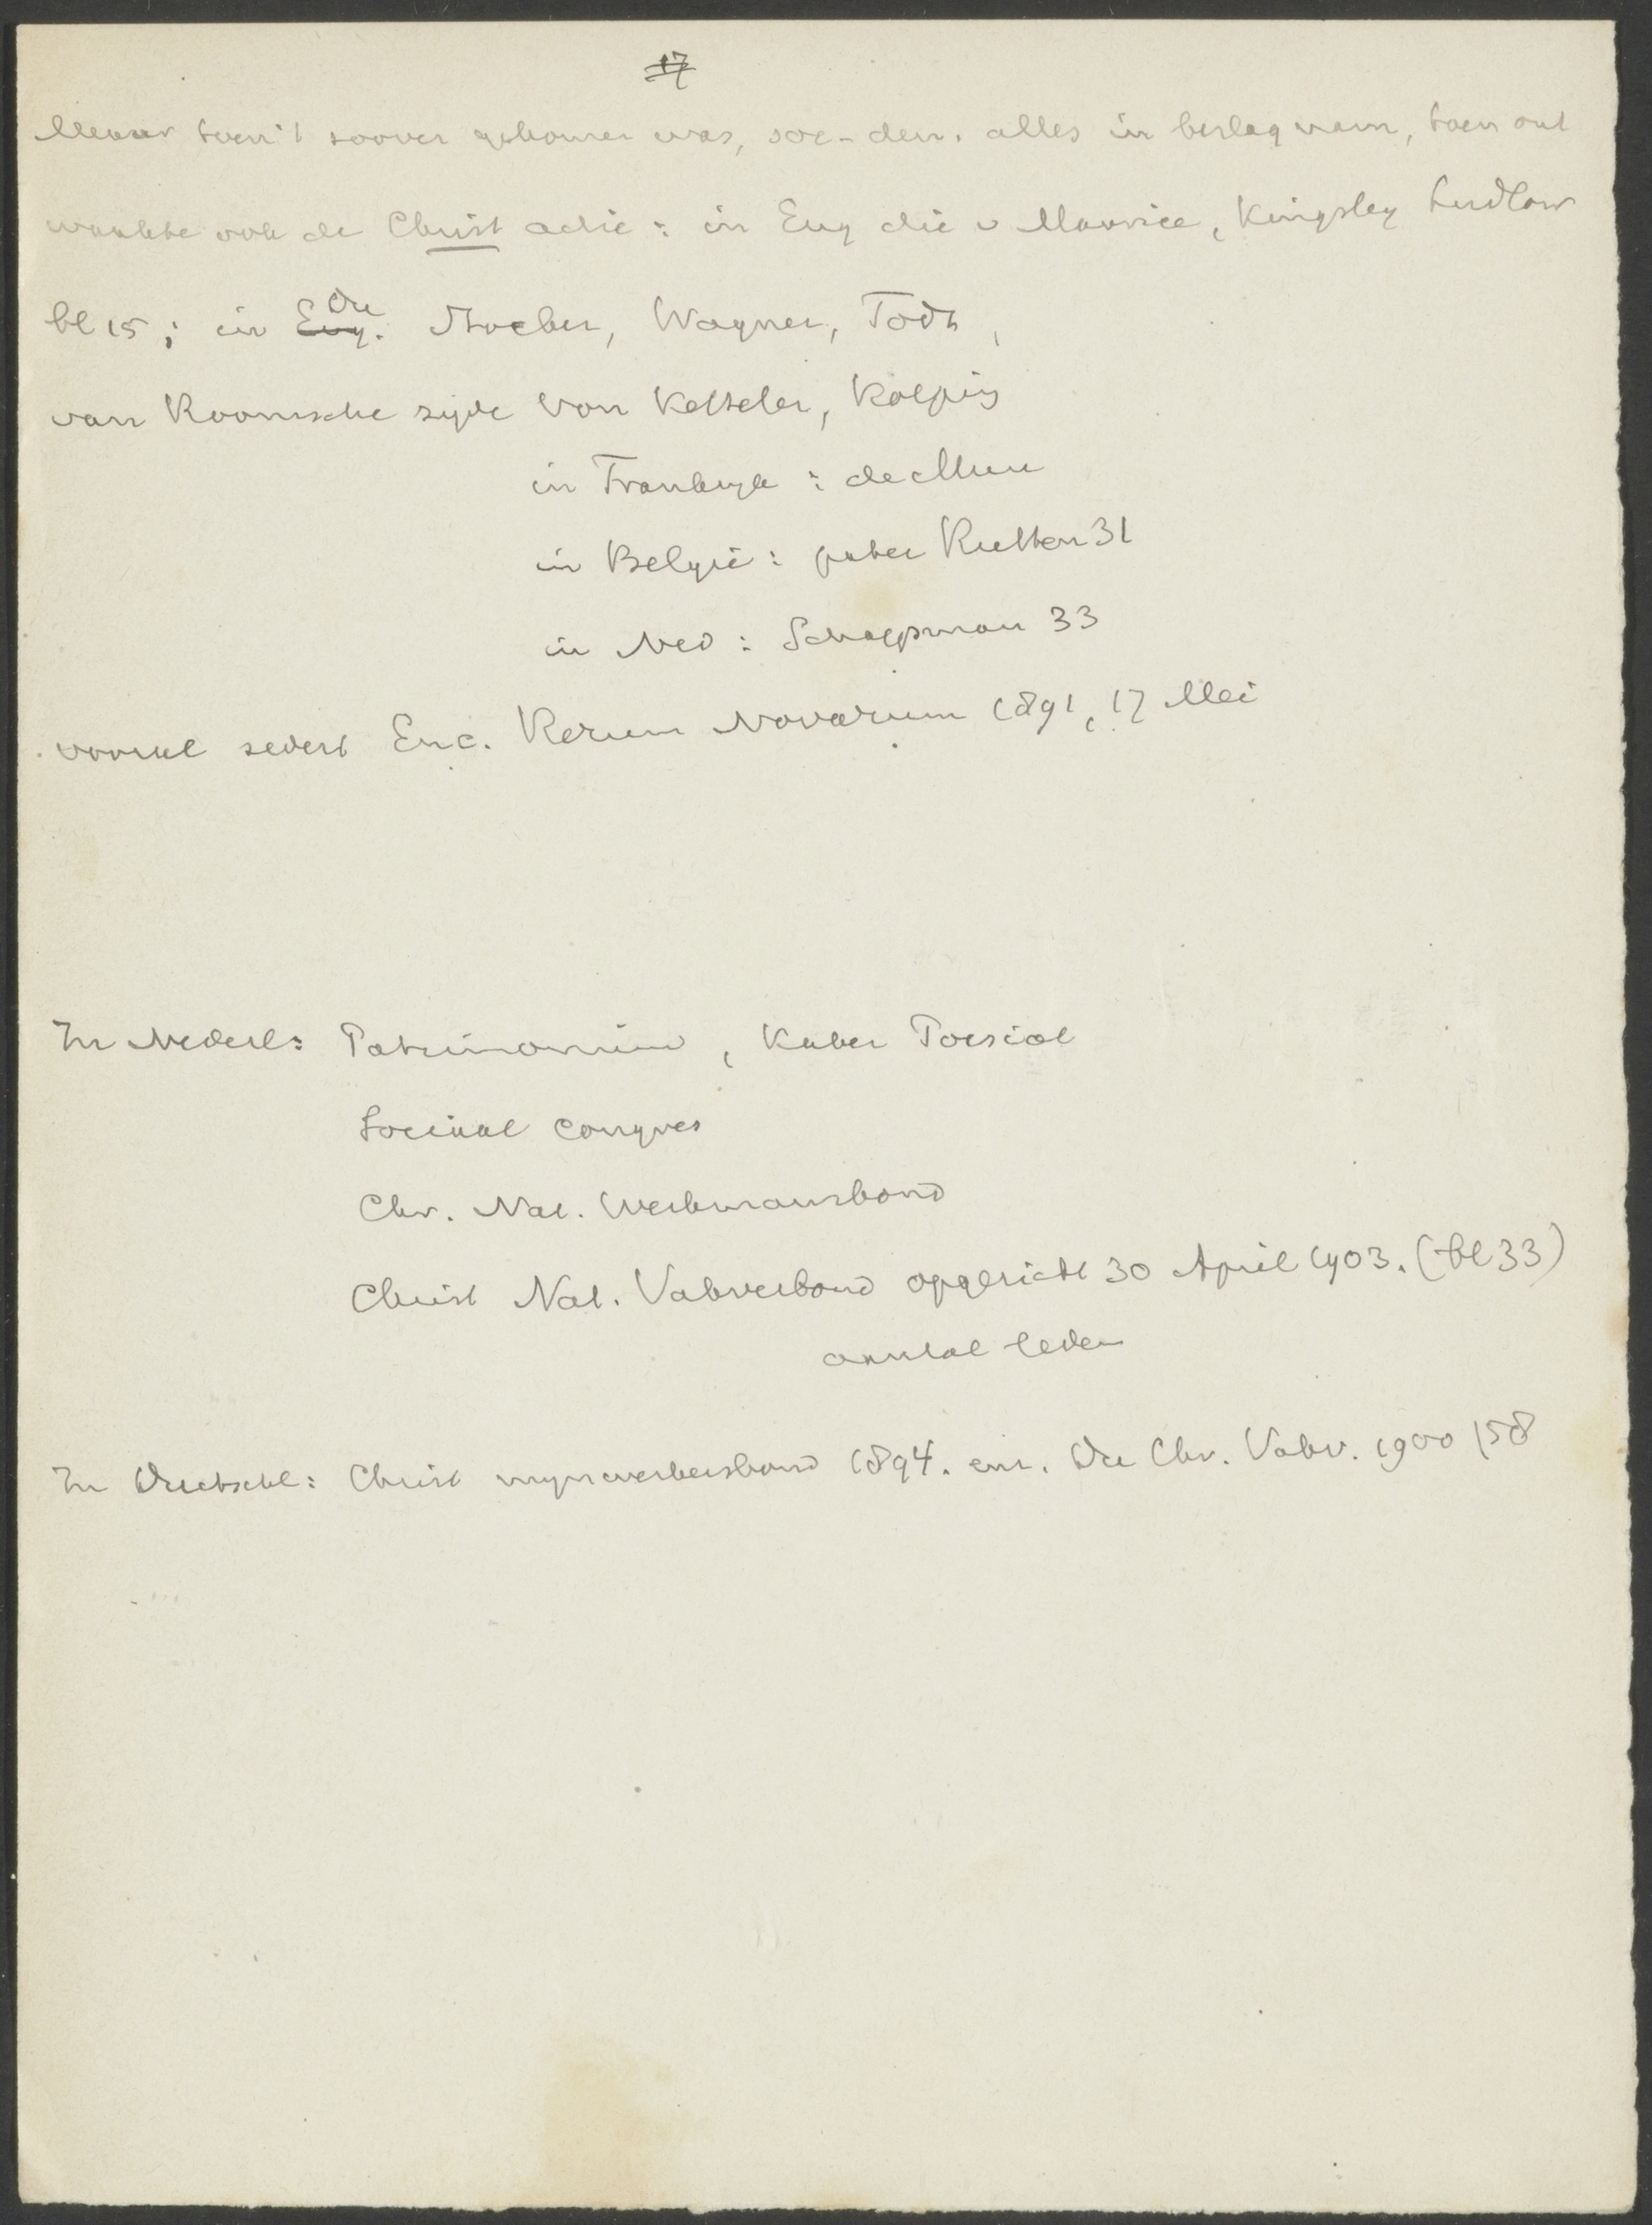 17
Maar toen 't zoover gekomen was, soc-dem. alles in beslag nam, toen ont
waakte ook de Christ actie: in Eng die v Maurice, Kingsley Ludlow
bl 15; in Eng. Du Stoecker, Wagner, Todt,
van Roomsche zijde Von Ketteler, Kolping
in Frankrijk: de Mun
in België: pater Rutten 31
in Ned: Schaepman 33
vooral sedert Enc. Rerum Novarum 1891, 17 Mei
In Nederl: Patrimonium, Kater Poesiat
Sociaal Congres
Chr. Nat. Werkmansbond
Christ Nat. Vakverbond opgericht 30 April 1903. (bl 33)
aantal leden
In Duitschl: Christ mijnwerkersbond 1894. enz. De Chr. Vakv. 1900 158